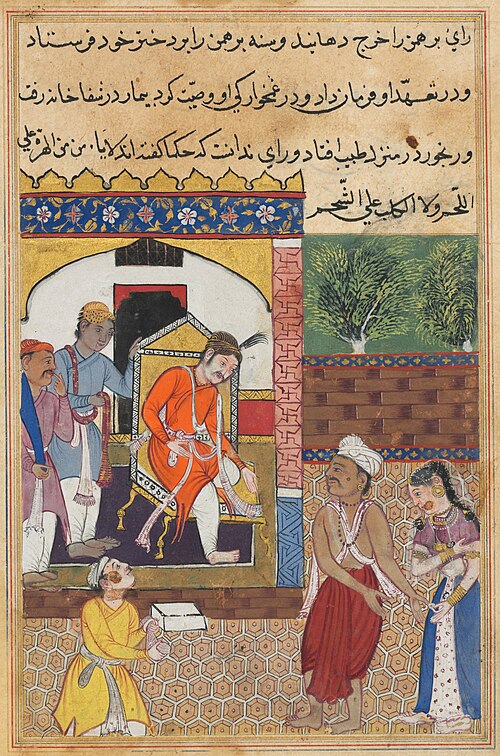 رای برهمن را خرج دهانید و سنه برهمن را بر دختر خود فرستاد
و در تعهد او فرمان داد و در غمخوارکی او وصیت کرد بیمار در شفا خانه رفت
و رنجور در منزل طبیب افتاد و رای ندانست که حکما کفته اند لا یامن من الهرة علی
اللحم ولا الکلب علی الشحم